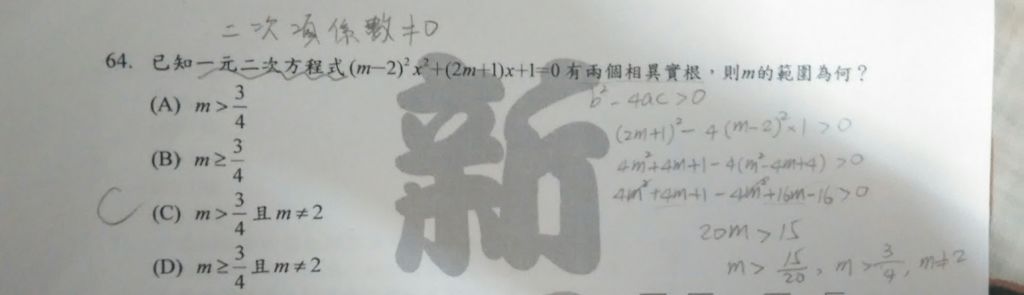 二次項係數≠0
64. 已知一元二次方程式(m−2)²x²+(2m+1)x+1=0有兩個相異實根，則m的範圍為何？
(A) m>3/4
(B) m≥3/4
(C) m>3/4 且 m≠2
(D) m≥3/4 且 m≠2
C
b²-4ac>0
(2m+1)²-4(m-2)²×1>0
4m²+4m+1-4(m²-4m+4)>0
4m²+4m+1-4m²+16m-16>0
20m>15
m>15/20, m>3/4, m≠2
新